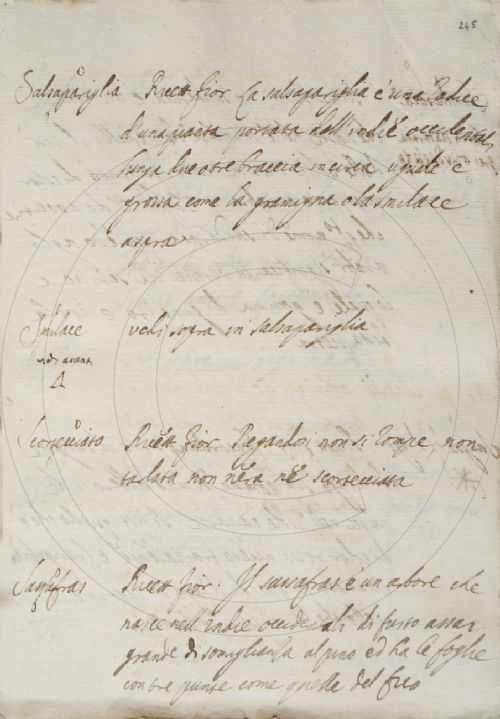 245
Salsapariglia Ricett fior La salsapariglia è una radice
d'una pianta portata dell'indie occidentali
lunga due o tre braccia in circa uguale e
grossa come la gramigna o la smilace
aspra
Smilace vedi sopra in salsapariglia
vedi avanti
Scorsecciato Ricett fior Piegandosi non si rompe non
tarlata non nera nè scorsecciata
Sassafras Ricett fior. Il sassafras è un arbore che
nasce nell'indie occidentali di fusto assai
grande di somiglianza al pino ed ha le foglie
con tre punte come quelle del fico